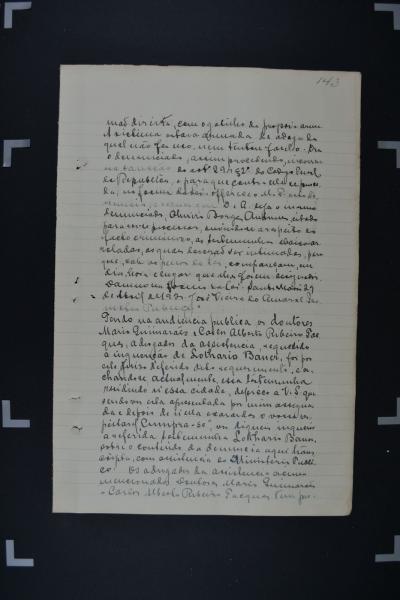 143
mão direita, com o gatilho da propria arma.
A victima estava armada de adaga da
qual não fez uso, nem tentou fazel-o.
o denunciado, assim procedendo, incorreu
na sancção do art. 294 § 2º do Codigo Penal
da Republica, e para que contra elle se proce-
da, na forma da lei, offerece o M. P.
D. A. seja o mesmo
denunciado, Olmiro Borges citado
para se ver processar, a respeito do
facto criminoso, as testemunhas abaixo ar-
roladas, as quaes deverão ser intimadas, para
que, sob as penas da lei, compareçam, em
dia, hora e lugar que
de Abril de 193 José Vieira do Amaral
Publico."
Tendo na audiencia publica os doutores
Mario Guimarães e Carlos Alberto Ribeiro Tac-
ques, advogados da assistencia, requerido
a inquirição de Lothario Bauer, foi por
este Juizo deferido dito requerimento, e a-
chando-se actualmente, essa testemunha
residindo n'essa cidade, depreco a V. S. que
sendo-vos esta apresentada por mim assigna-
da e depois de n'ella exarardes o vosso res-
peitavel "Cumpra-se", vos digneis inquerir
a referida testemunha Lothario Bauer,
sobre o conteúdo da denuncia aqui trans-
cripta, com assistencia do Ministerio Publi-
co. Os advogados da assistencia acima
mencionados Doutores Mario Guimarães
e Carlos Alberto Ribeiro Tacques